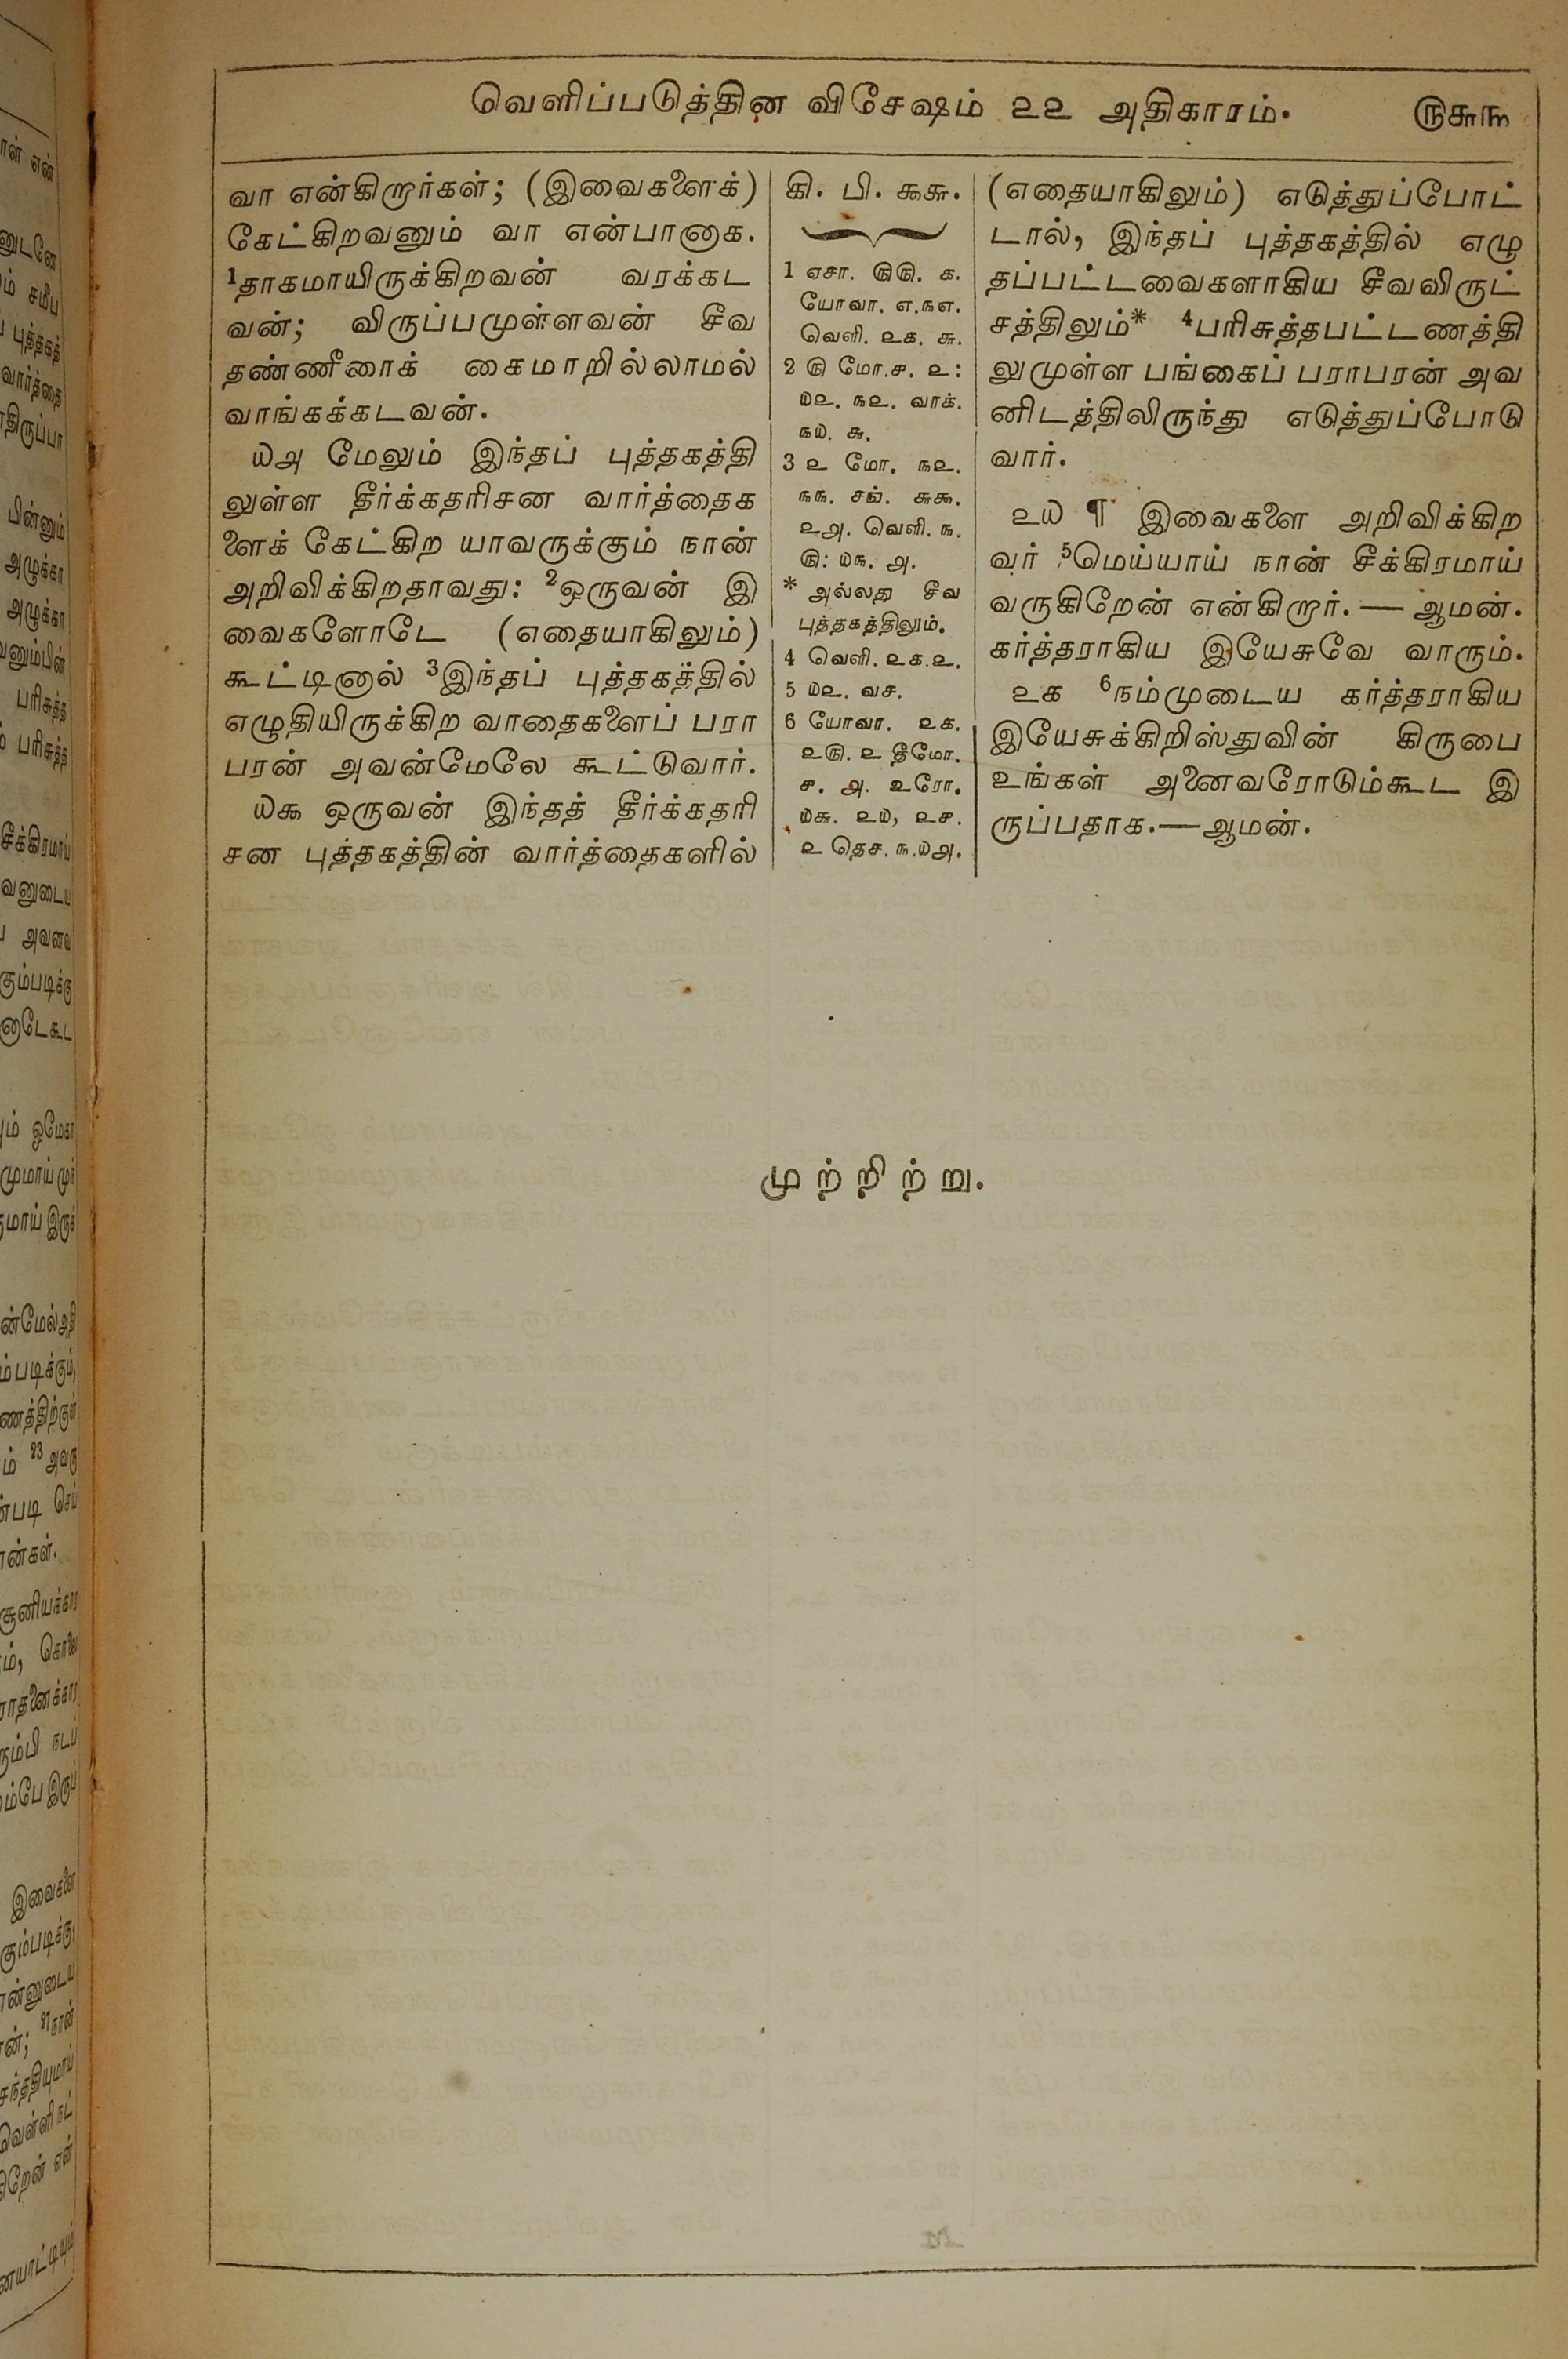 வெளிப்படுத்தின விசேஷம் ௨௨ அதிகாரம். ௫௬௩
வா என்கிறார்கள்; (இவைகளைக்)
கேட்கிறவனும் வா என்பானாக.
1தாகமாயிருக்கிறவன் வரக்கட
வன்; விருப்பமுள்ளவன் சீவ
தண்ணீரைக் கைமாறில்லாமல்
வாங்கக்கடவன்.
௰௮ மேலும் இந்தப் புத்தகத்தி
லுள்ள தீர்க்கதரிசன வார்த்தைக
ளைக் கேட்கிற யாவருக்கும் நான்
அறிவிக்கிறதாவது: 2ஒருவன் இ
வைகளோடே (எதையாகிலும்)
கூட்டினால் 3இந்தப் புத்தகத்தில்
எழுதியிருக்கிற வாதைகளைப் பரா
பரன் அவன்மேலே கூட்டுவார்.
௰௯ ஒருவன் இந்தத் தீர்க்கதரி
சன புத்தகத்தின் வார்த்தைகளில்
கி. பி. ௯௬.
1 ஏசா. ௫௫. ௧.
யோவா. ௭.௩௭.
வெளி. ௨௧. ௬.
2 ௫ மோ.௪. ௨:
௰௨. ௩௨. வாக்.
௩௰. ௬.
3 ௨ மோ. ௩௨.
௩௩. சங். ௬௯.
௨௮. வெளி. ௩.
௫: ௰௩. ௮.
* அல்லது சீவ
புத்தகத்திலும்.
4 வெளி. ௨௧.௨.
5 ௰௨. வச.
6 யோவா. ௨௧.
௨௫. ௨ தீமோ.
௪. ௮. உரோ.
௰௬. ௨௰, ௨௪.
௨ தெச. ௩.௰௮.
(எதையாகிலும்) எடுத்துப்போட்
டால், இந்தப் புத்தகத்தில் எழு
தப்பட்டவைகளாகிய சீவவிருட்
சத்திலும்* 4பரிசுத்தபட்டணத்தி
லுமுள்ள பங்கைப் பராபரன் அவ
னிடத்திலிருந்து எடுத்துப்போடு
வார்.
௨௰ ¶ இவைகளை அறிவிக்கிற
வர் 5மெய்யாய் நான் சீக்கிரமாய்
வருகிறேன் என்கிறார்.— ஆமன்.
கர்த்தராகிய இயேசுவே வாரும்.
௨௧ 6நம்முடைய கர்த்தராகிய
இயேசுக்கிறிஸ்துவின் கிருபை
உங்கள் அனைவரோடும்கூட இ
ருப்பதாக.—ஆமன்.
முற்றிற்று.